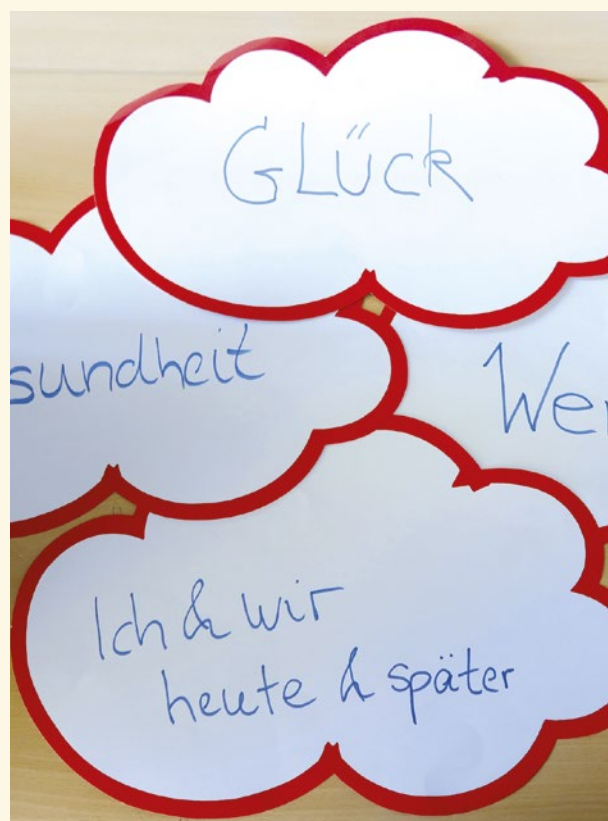 GLÜCK
sundheit
Wer
Ich & wir
heute & später